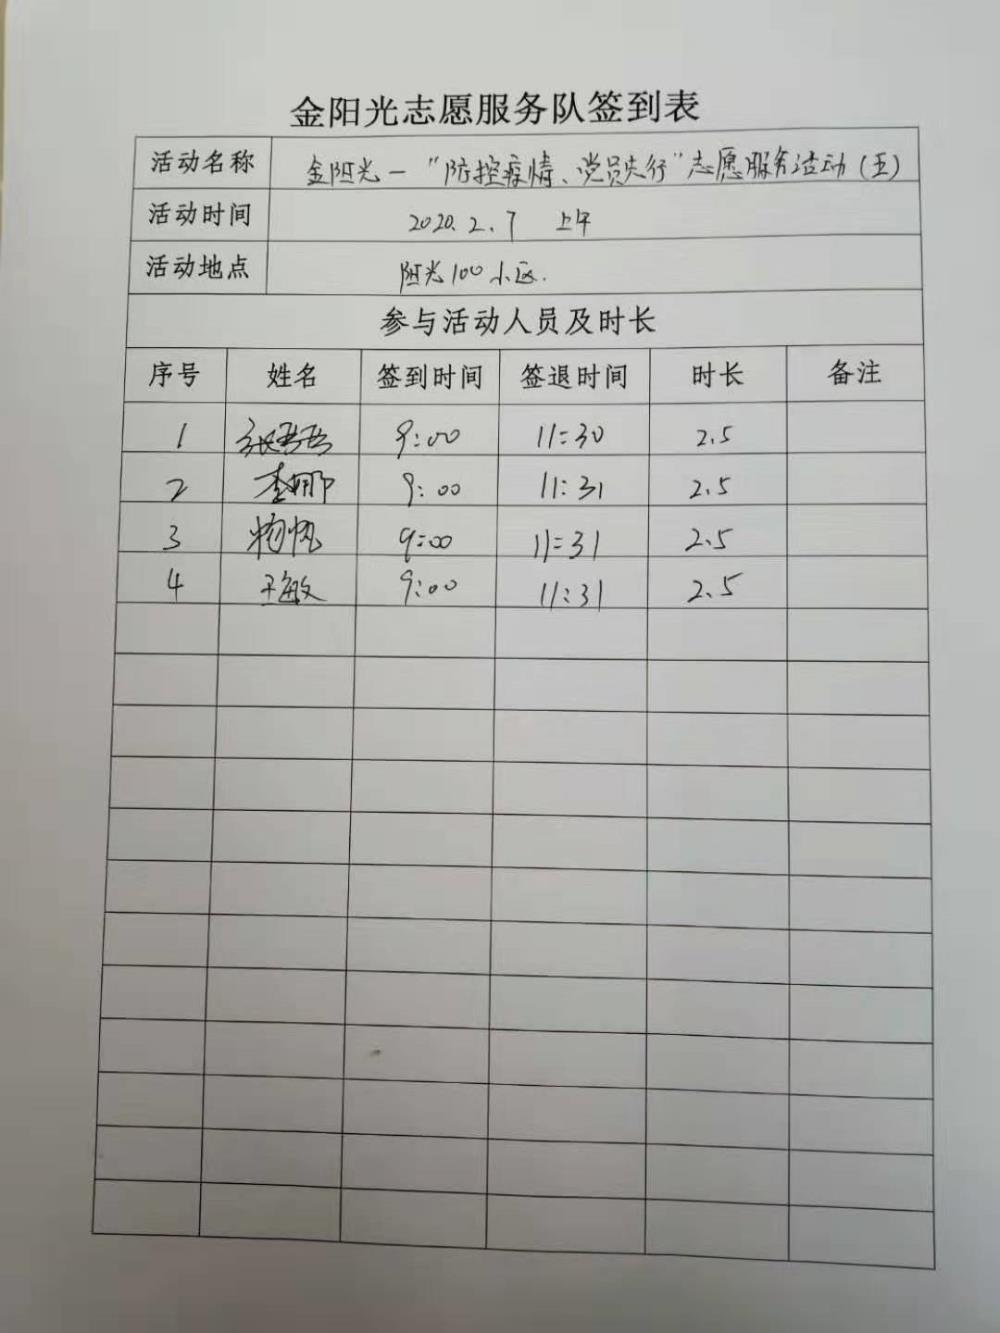 金阳光志愿服务队签到表
活动名称 金阳光—“防控疫情、党员先行”志愿服务活动(五)
活动时间 2020.2.7 上午
活动地点 阳光100小区.
参与活动人员及时长
序号 姓名 签到时间 签退时间 时长 备注
1 9:00 11:30 2.5
2 李娜 9:00 11:31 2.5
3 9:00 11:31 2.5
4 王敏 9:00 11:31 2.5